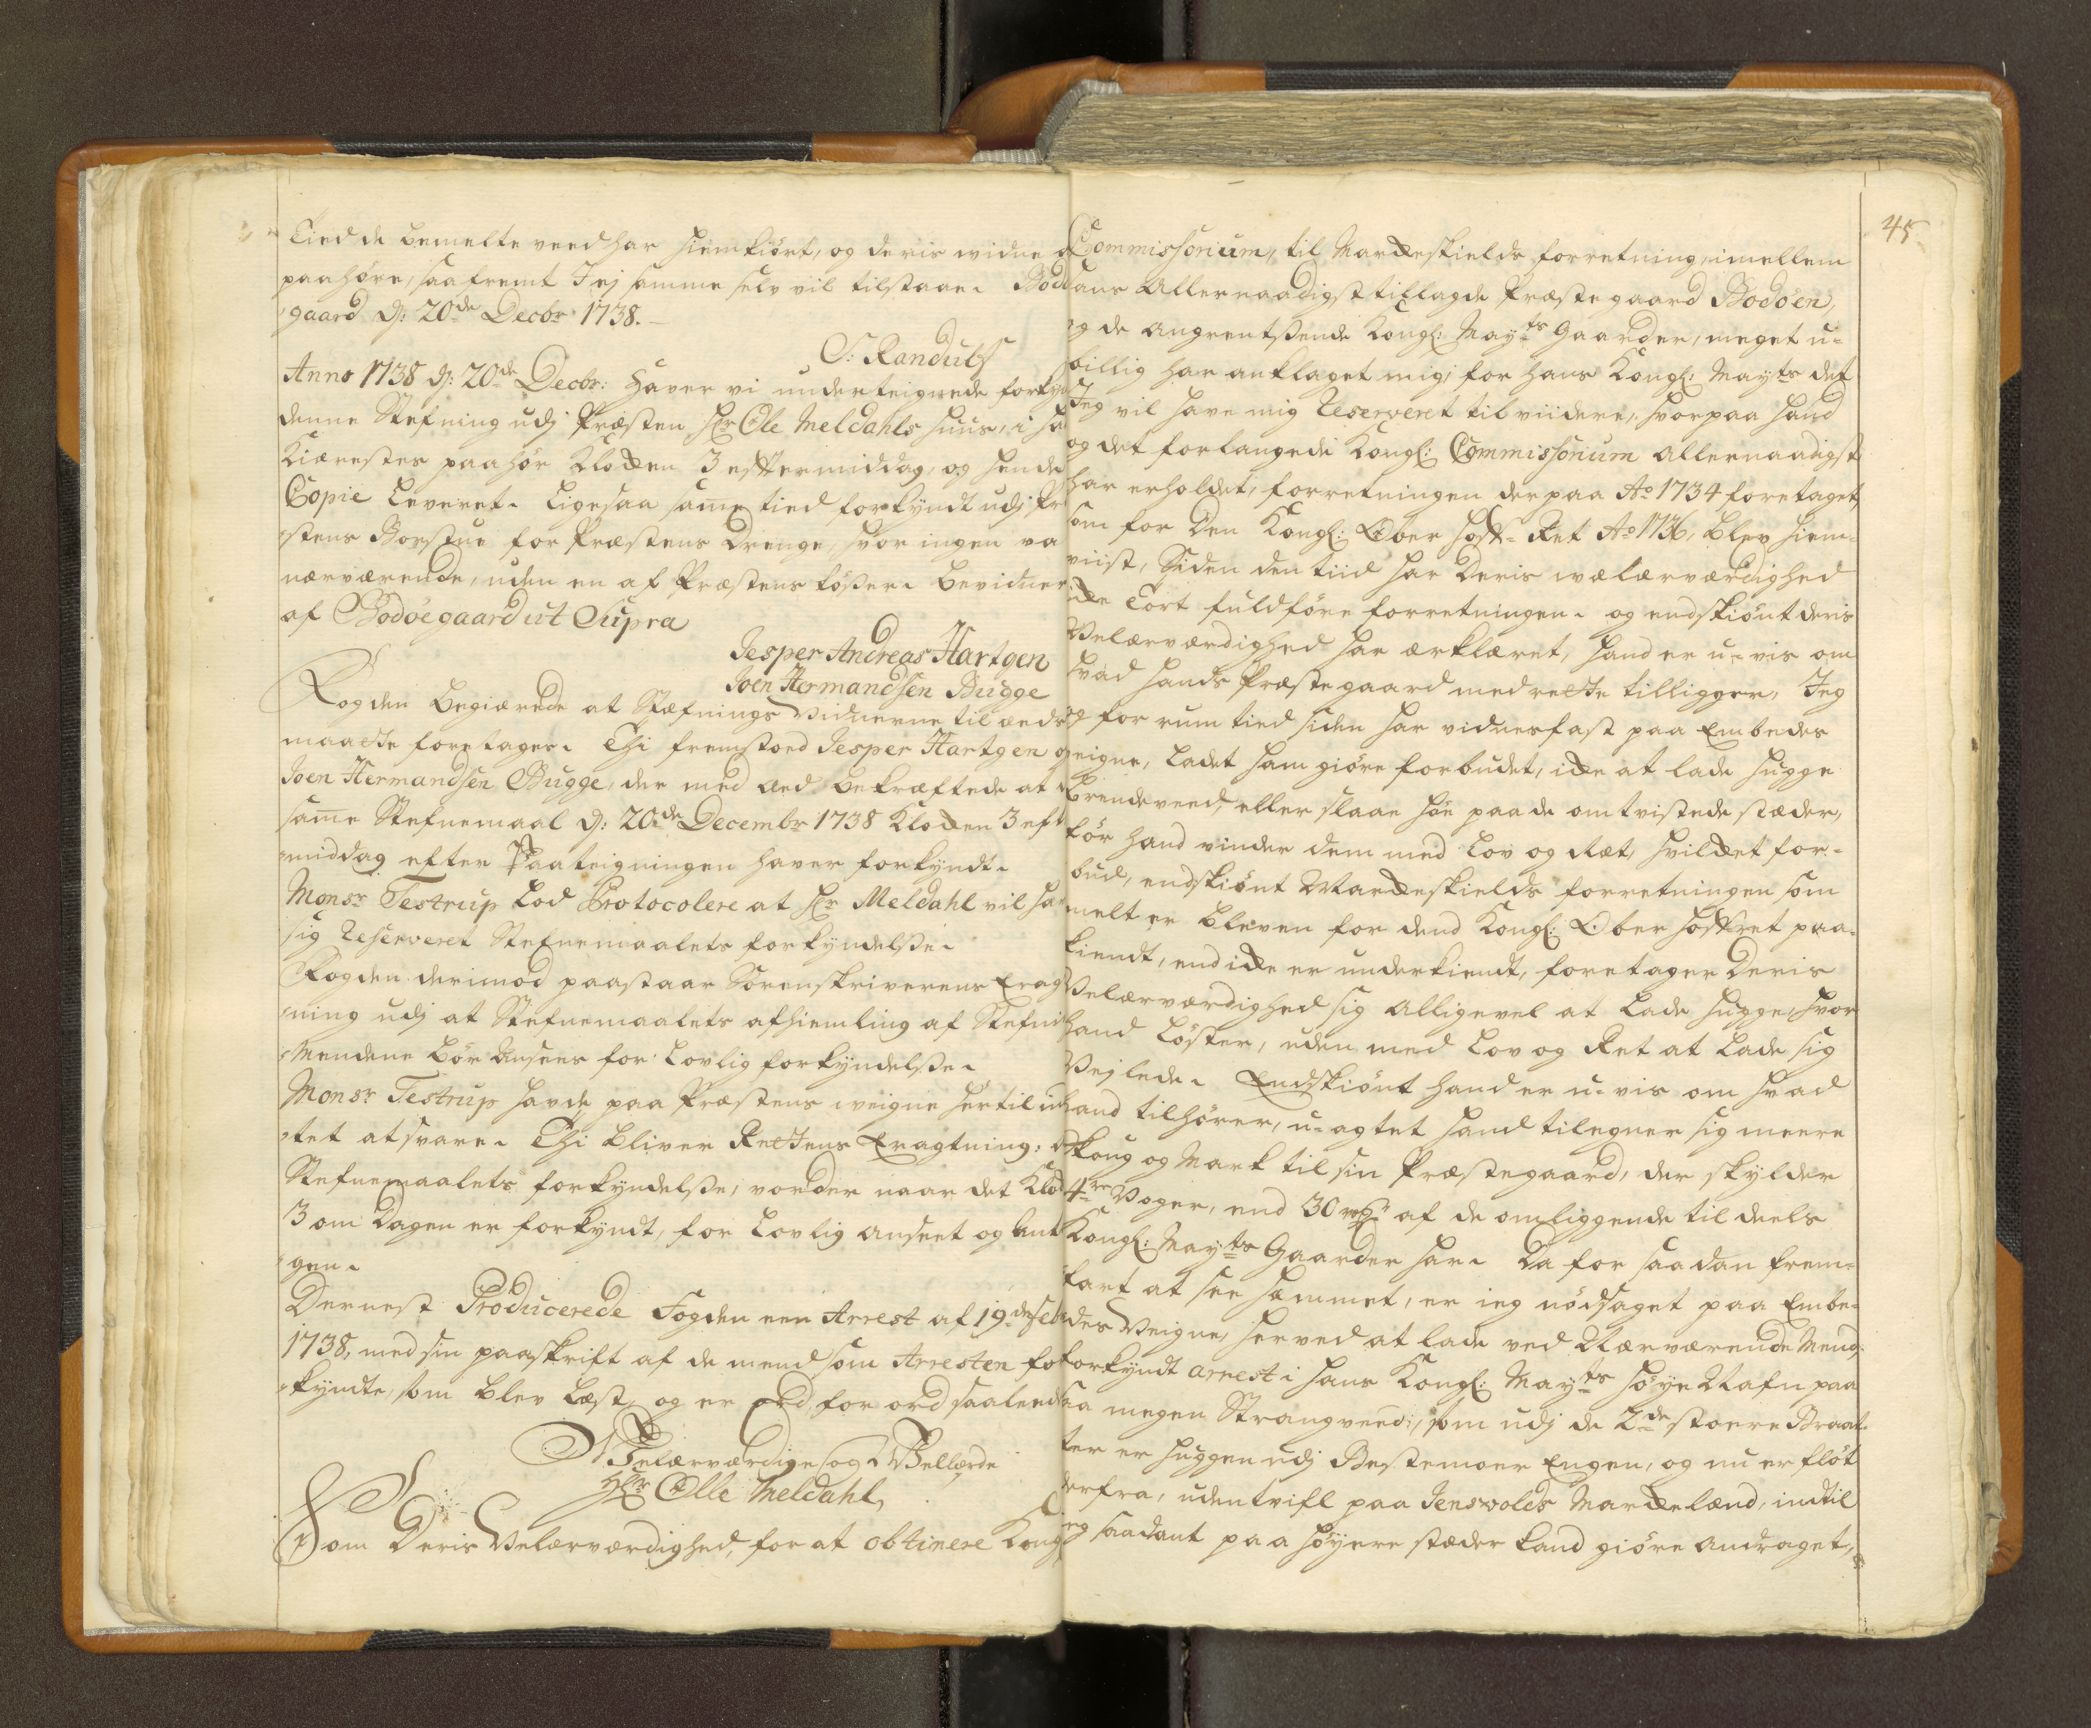 Tied de bemelte veed har hiemkiørt, og deris vidne
paahøre, saafremt I ej samme selv vil tilstaae. Bod
gaard d: 20de Decbr 1738.
S: Randulf
Anno 1738 d: 20de Decbr: haver vi underteignede forkyn
denne Stefning udj Præsten Hr Ole Meldahls huus, i ha
Kiærestes paahør Klocken 3 eftermiddag, og hende
Copie leveret. Ligesaa same tied forkyndt udj Præ
stens Borstue for Præstens Drenge, hvor ingen va
nærværende, uden en af Præstens tøßer. bevidner
af Bodøegaard ut Supra
Jesper Andreas Hartgen
Joen Hermandsen Bugge
Fogden begiærede at Stefnings Vidnerne til æeds
maatte foretages. Thi fremstoed Jesper Hartgen og
Joen Hermandsen Bugge, der med æd bekræftede at
same Stefnemaal d: 20de Decembr 1738 Klocken 3 eft
middag efter Paateigningen haver forkyndt.
Monsr Testrup lod Protocolere at Hr Meldahl vil ha
sig Reserveret Stefnemaalets forkyndelße.
Fogden derimod paastaar Sorenskriverens Eragt
ning udj at Stefnemaalets afhiemling af Stefne
Mendene bør ansees for lovlig forkyndelße.
Monsr Testrup havde paa Præstens weigne hertil in
tet at svare. Thi bliver Rettens Eragtning:
Stefnemaalets forkyndelße, vorder naar det Kloc
3 om Dagen er forkyndt, for lovlig anseet og ant
gen.
Dernest Producerede Fogden een Arrest af 19de
1738, med sin paaskrift af de mend som Arresten for
kyndte, som blev læst, og er ord for ord saaleed
Velærværdige og Vellærde
Hr Olle Meldahl,
Som Deris Velærværdighed, for at obtinere Kongl
45
Commissorium, til Markeskields forretning, imellem
hans Allernaadigst tillagde Præstegaard Bodøen,
og de angrentßende Kongl: Mayts Gaarder, meget u-
billig har anklaget mig, for hans Kongl: Mayts det
Jeg vil have mig Reserveret til viidere, hvorpaa hand
og det forlangede Kongl: Commissorium allernaadigst
har erholdet, forretningen derpaa Ao 1734 foretaget,
som for Den Kongl: Ober Hoff-Ret Ao 1736, blev hiem-
viist, Siden den tiid har Deris wælærværdighed
icke tort fuldføre forretningen. og endskiønt deris
Velærværdighed har ærklæret, hand er u-vis om
hvad hands Præstegaard med rette tilligger, Jeg
for rum tied siden har vidnesfast paa Embedes
veigne, ladet ham giøre forbudet, icke at lade hugge
brendeveed, eller slaae høe paa de omtvistede stæder,
før hand vinder dem med Lov og Ræt, hvilket for-
bud, endskiønt Markeskields forretningen som
melt er bleven for dend Kongl: Ober Hoffret paa-
kiendt, end icke er underkiendt, foretager Deris
Velærværdighed sig alligevel at lade hugge, hvor
hand løster, uden med Lov og Ret at lade sig
Vejlede. Endskiønt hand er u-vis om hvad
hand tilhører, u-agtet hand tilegner sig meere
skoug og Mark til sin Præstegaard, der skylder
4re Voger, end 30 af de omliggende til deels
Kongl: Mayts Gaarder har. Da for saadan frem-
fart at see hemmet, er ieg nødsaget paa Embe-
des Veigne, herved at lade ved Nærværende Mend,
forkyndt arrest i hans Kongl: Mayts høye Nafn paa
saa megen Strangveed, som udj de 2de stoere Braat-
ter er huggen udj Bestemoer Engen, og nu er fløt
derfra, uden tvifl paa Jensvolds Markelænd, indtil
ieg saadant paa høyere stæder kand giøre andraget,